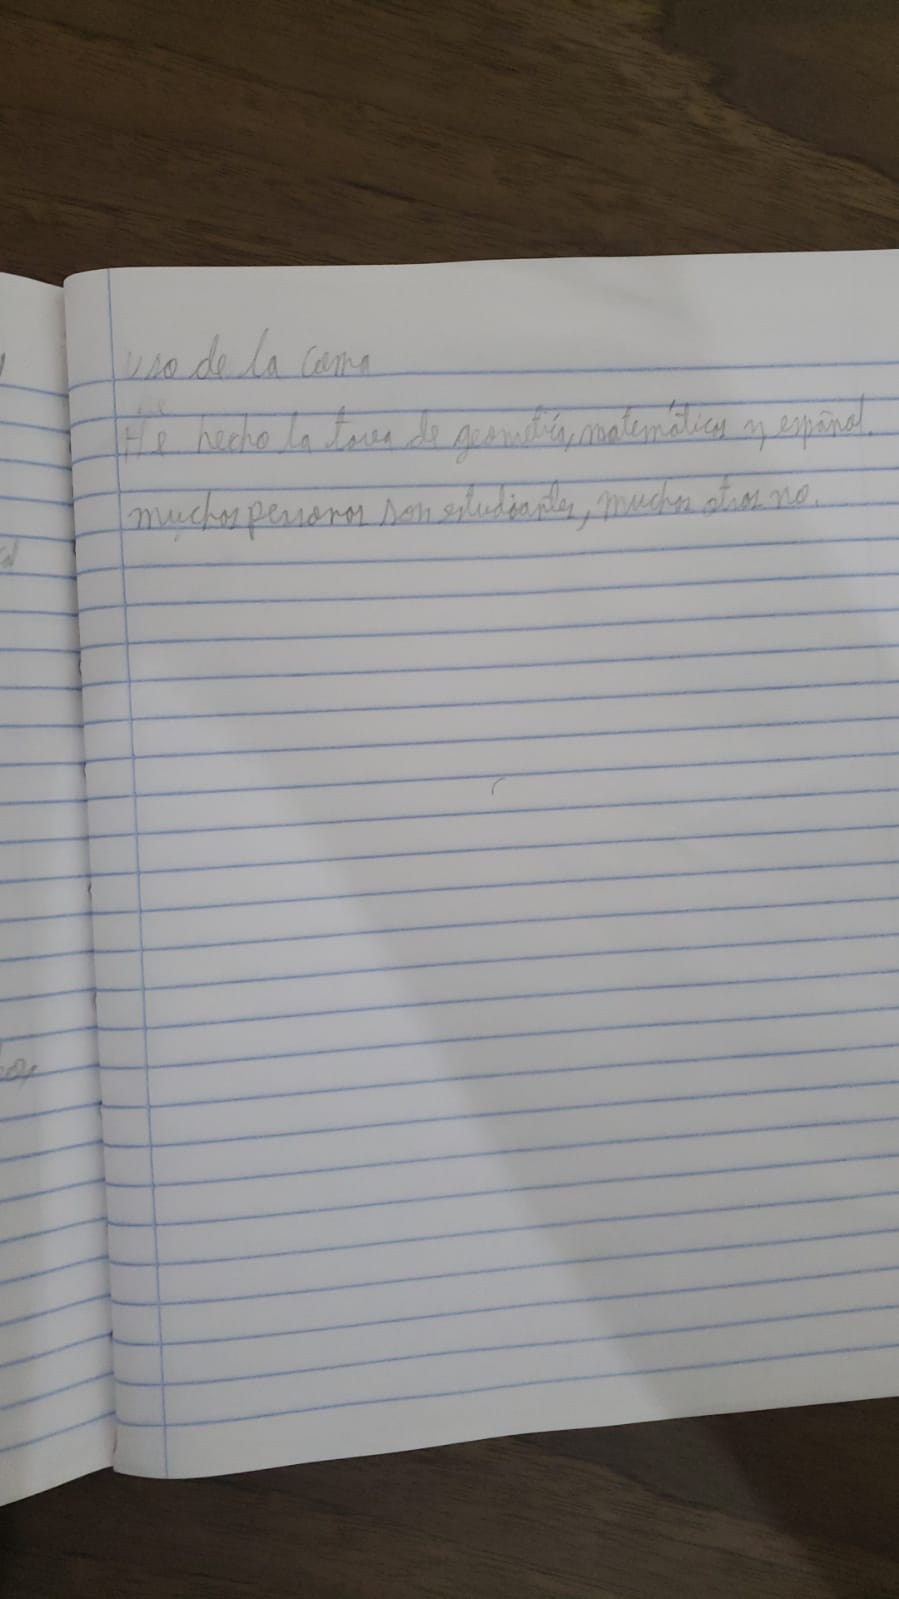 uso de la coma
He hecho la tarea de geometría, matemáticas y español.
muchas personas son estudiantes, muchas otras no.